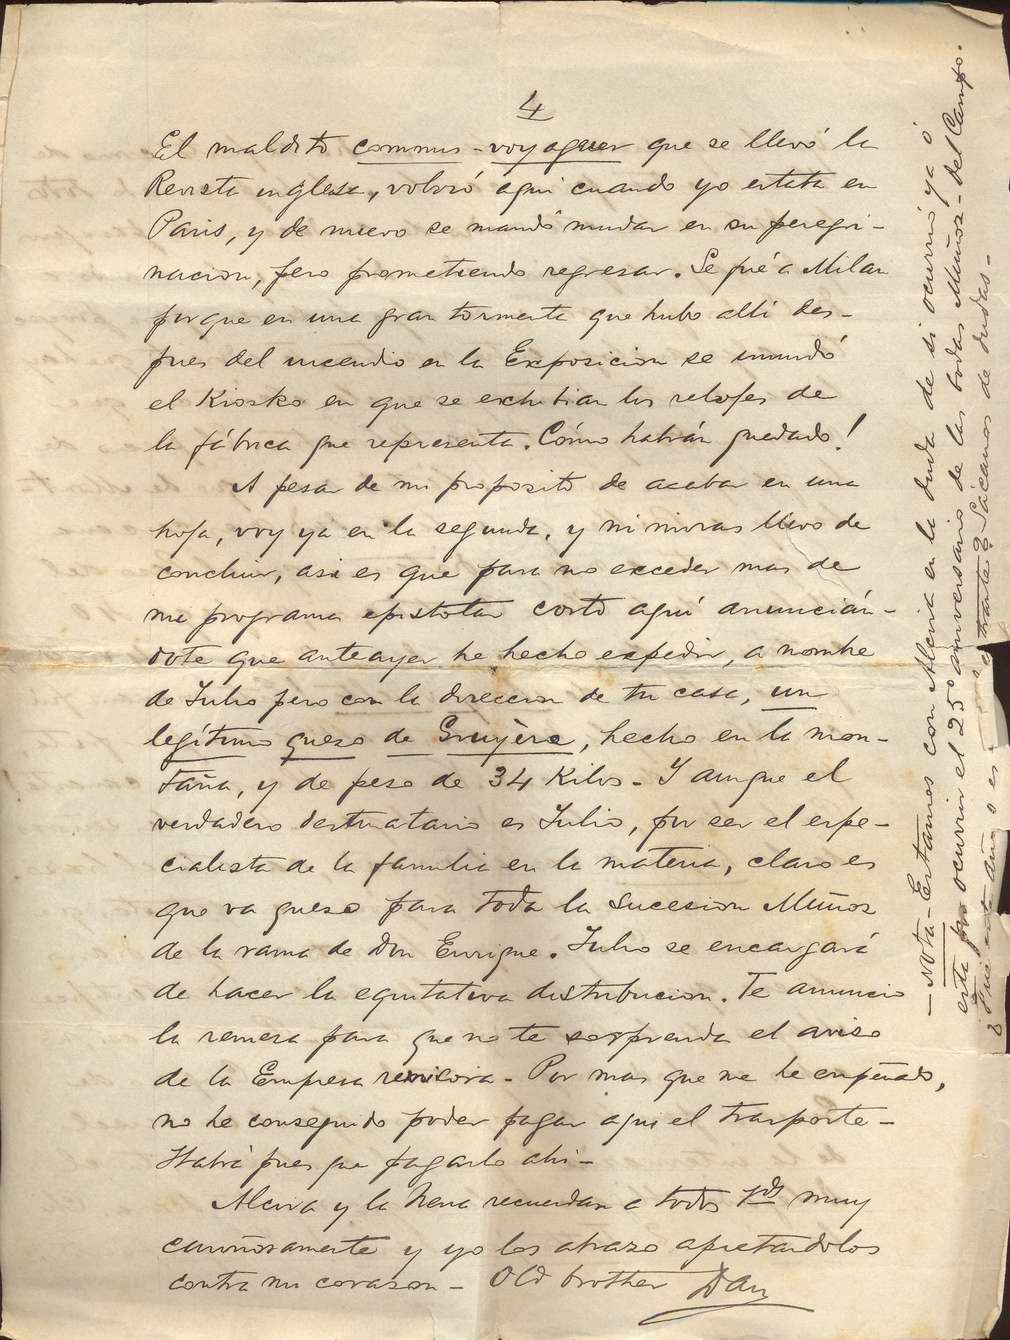 4
El maldito commis-voyaguer que se llevó la
Revista inglesa, volvió aqui cuando yo estaba en
Paris, y de nuevo se mandó mudar en su peregri-
nacion, pero prometiendo regresar. Se fué a Milan
porque en una gran tormenta que hubo allí des-
pues del incendio en la Exposicion se inundó
el Kiosko en que se exhibian los relojes de
la fábrica que representa. Cómo habrán quedado!
A pesar de mi proposito de acabar en una
hoja, voy ya en la segunda, y ni miras llevo de
concluir, asi es que para no exceder mas de
mi programa epistolar corto aquí anuncián-
dote que anteayer he hecho expedir, a nombre
de Julio pero con la direccion de tu casa, un
legítimo queso de Gruyère, hecho en la mon-
taña, y de peso de 34 Kilos - Y aunque el
verdadero destinatario es Julio, por ser el espe-
cialista de la familia en la materia, claro es
que va queso para toda la sucesion Muñoz
de la rama de Don Enrique. Julio se encargará
de hacer la equitativa distribucion. Te anuncio
la remesa para que no te sorprenda el aviso
de la Empresa remisora - Por mas que me he empeñado,
no he conseguido poder pagar aqui el trasporte -
Habrá pues que pagarlo ahi -
Alcira y la Nena recuerdan a todos Vds muy
cariñosamente y yo los abrazo apretandolos
contra mi corazon - Old brother Dan
- Nota - Estamos con Alcira en la duda de si ocurrió ya ó
está por ocurrir el 25º aniversario de las bodas Muñoz - del Campo.
¿Fué este año o es el entrante? Sácanos de dudas -